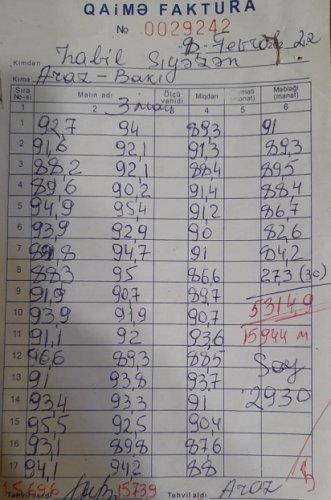 QAİMƏ FAKTURA
№ 0029242
Kimdən Habil Siyəzən
Kimə Araz-Bakı
Sıra №-si Malın adı Ölçü vahidi Miqdarı Qiyməti (manat) Məbləği (manat)
1 2 3 4 5 6
1 92,7 94 89,3 91
2 91,6 92,1 91,3 89,3
3 88,2 92,1 88,4 89,5
4 89,6 90,2 91,4 88,4
5 94,9 95,4 91,2 86,7
6 93,9 92,9 90 82,6
7 94,7 91 84,2
8 88,3 95 86,6 27,3 (30)
9 91,9 90,7 89,7
5314,9
10 93,9 91,9 90,7
11 91,1 92 93,6 15944 m
12 96,6 89,3 88,5 Say
13 91 93,8 93,7
14 93,4 93,3 91 2930
15 95,5 92,5 90,4
16 93,1 89,8 87,6
17 94,1 94,2 88
15696 15739
Təhvil verdi Təhvil aldı Araz